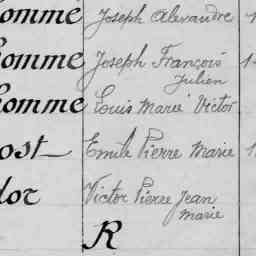 omme Joseph Alexandre
omme Joseph François
Julien
homme Louis Marie Victor
ost Emile Pierre Marie
dor Victor Pierre Jean
Marie
R